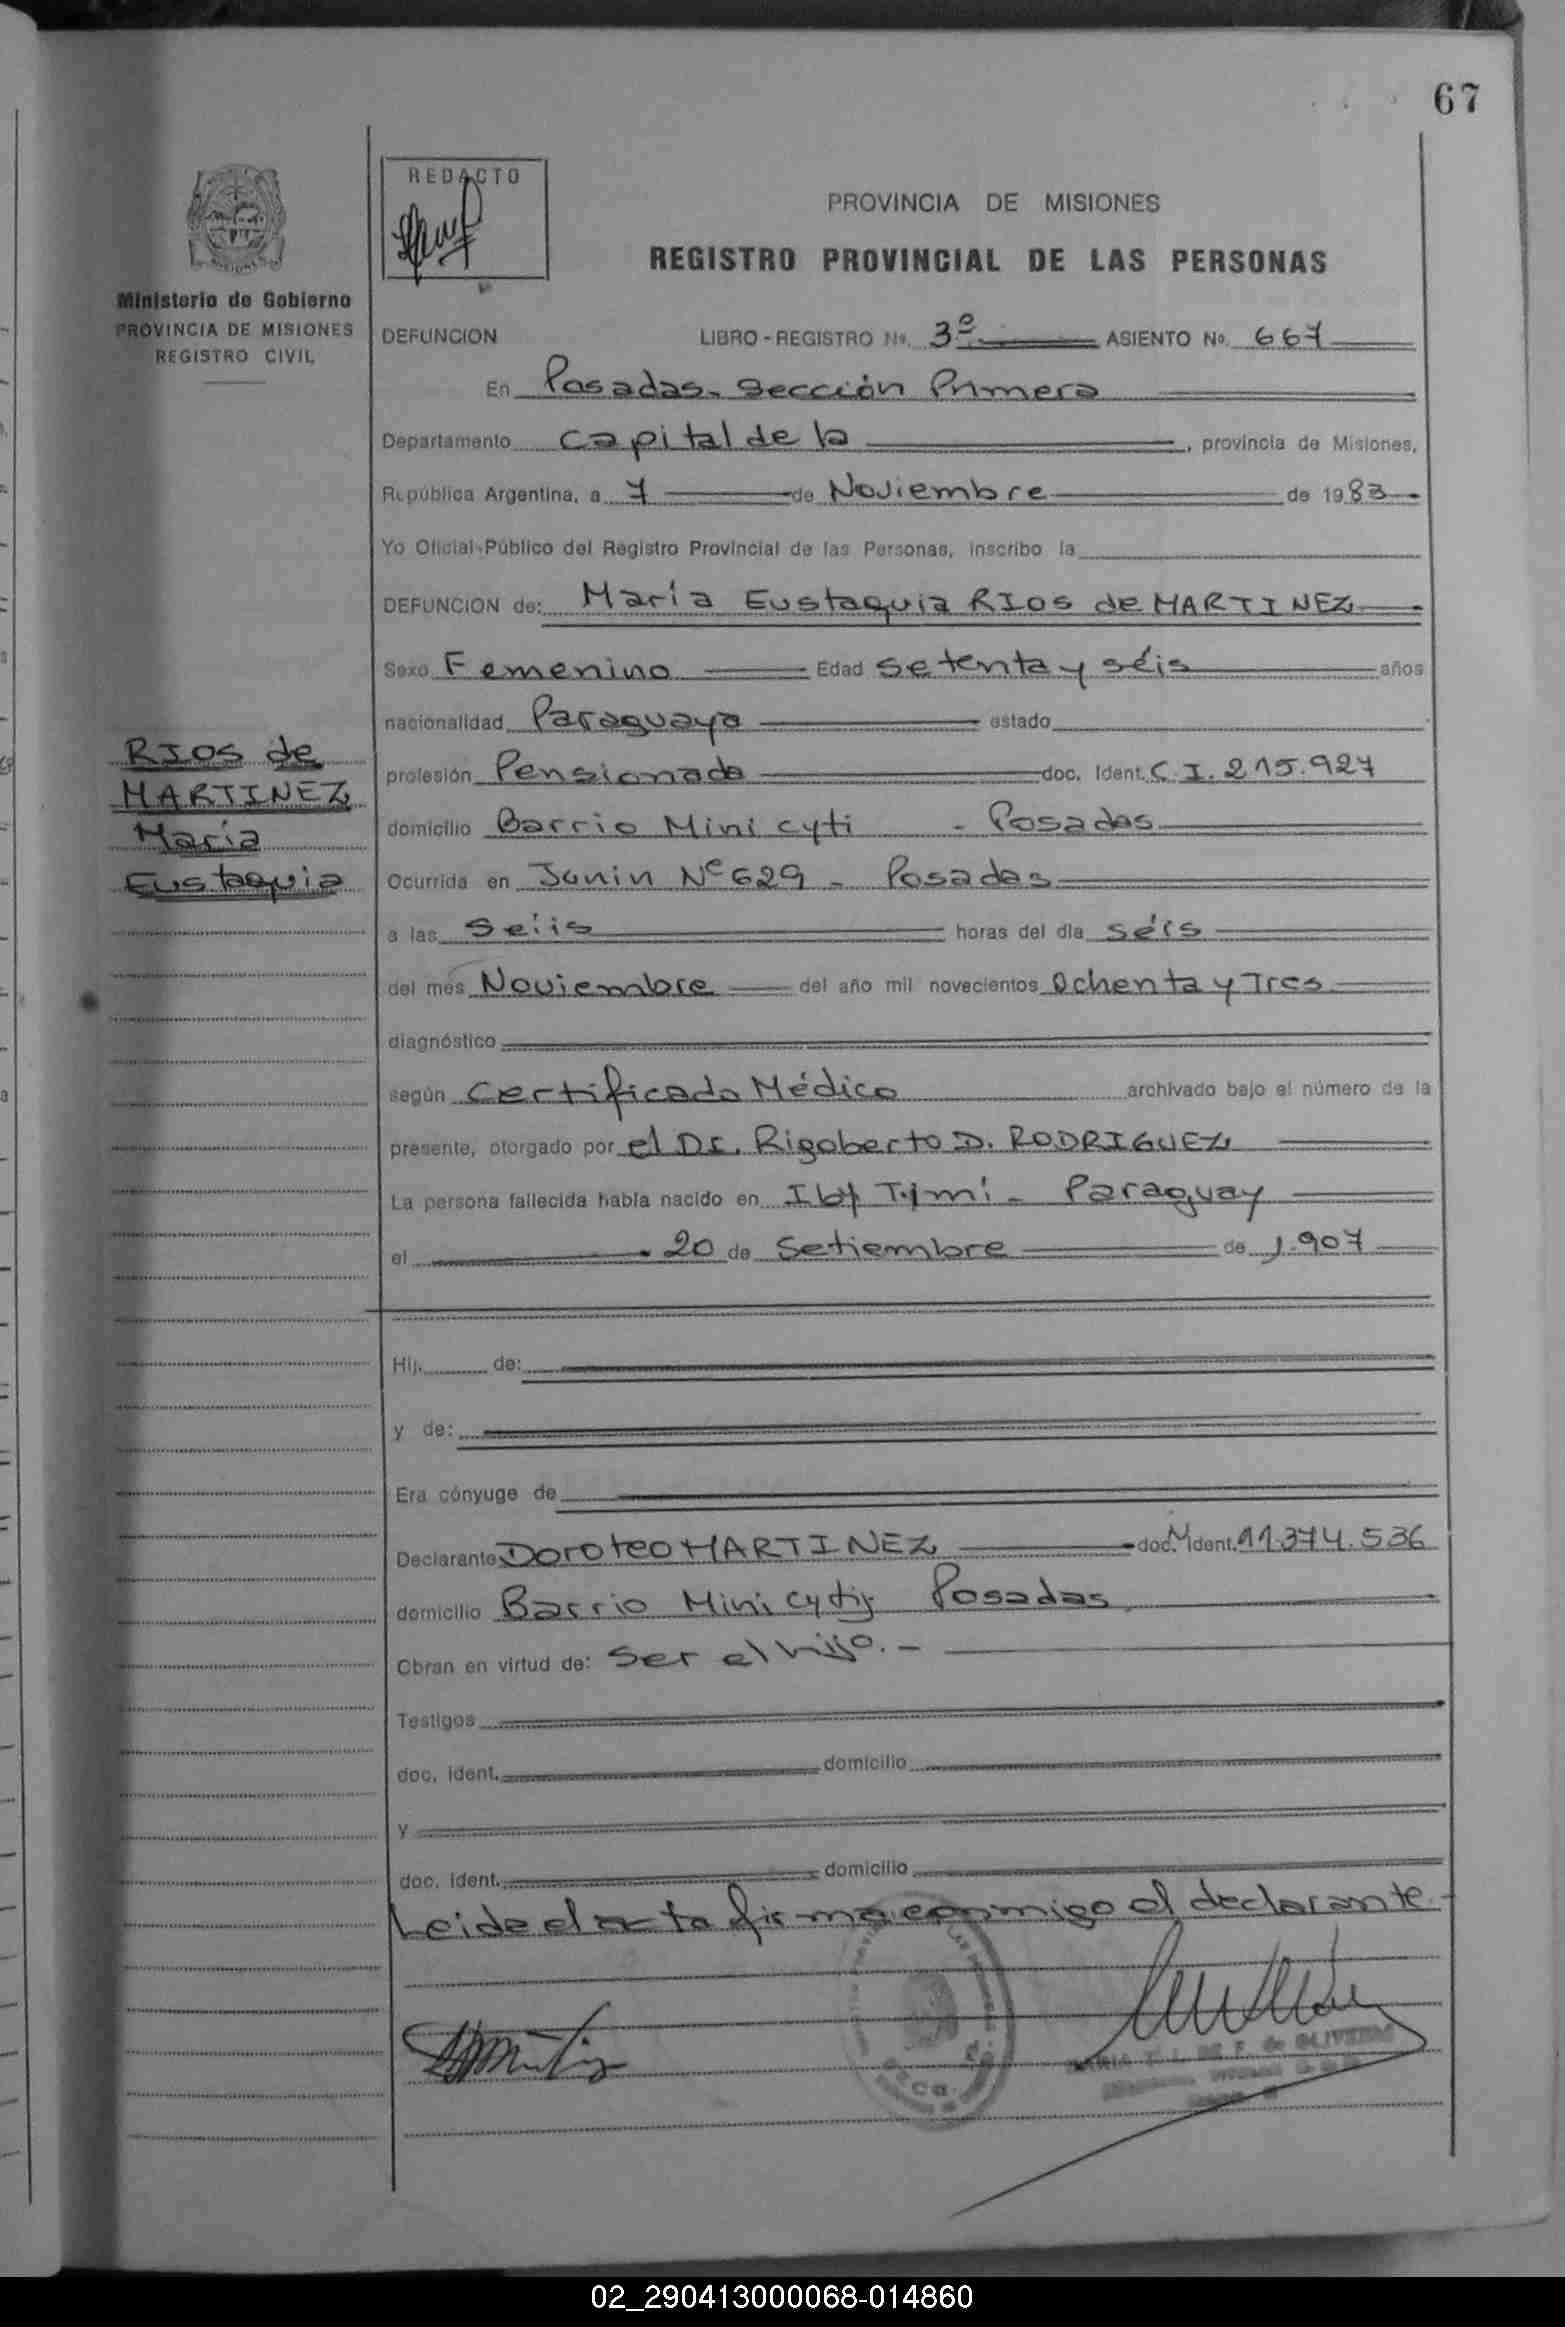 67
REDACTO
PROVINCIA DE MISIONES
REGISTRO PROVINCIAL DE LAS PERSONAS
Ministerio de Gobierno
PROVINCIA DE MISIONES
REGISTRO CIVIL
DEFUNCION LIBRO - REGISTRO No. 3º ASIENTO No. 667
En Posadas - Sección Primera
Departamento Capital de la, provincia de Misiones,
República Argentina, a 7 de Noviembre de 1983
Yo Oficial Público del Registro Provincial de las Personas, inscribo la
DEFUNCION de: María Eustaquia RIOS de MARTINEZ
Sexo Femenino Edad setenta y séis años
nacionalidad Paraguaya estado
RIOS de
MARTINEZ
María
Eustaquia
profesión Pensionada doc. Ident. C.I. 215.927
domicilio Barrio Mini cyti - Posadas
Ocurrida en Junin Nº 629 - Posadas
a las Seiis horas del día séis
del mes Noviembre del año mil novecientos Ochenta y Tres
diagnóstico
según Certificado Médico archivado bajo el número de la
presente, otorgado por el Dr. Rigoberto D. RODRIGUEZ
La persona fallecida había nacido en Iby Tymi - Paraguay
el 20 de Setiembre de 1.907
Hij de:
y de:
Era cónyuge de
Declarante Doroteo MARTINEZ doc. M ident. 11.374.536
domicilio Barrio Mini cyti Posadas
Obran en virtud de: Ser el hijo.-
Testigos
doc. ident. domicilio
y
doc. ident. domicilio
Leida el acta firma conmigo el declarante.-
02_290413000068-014860